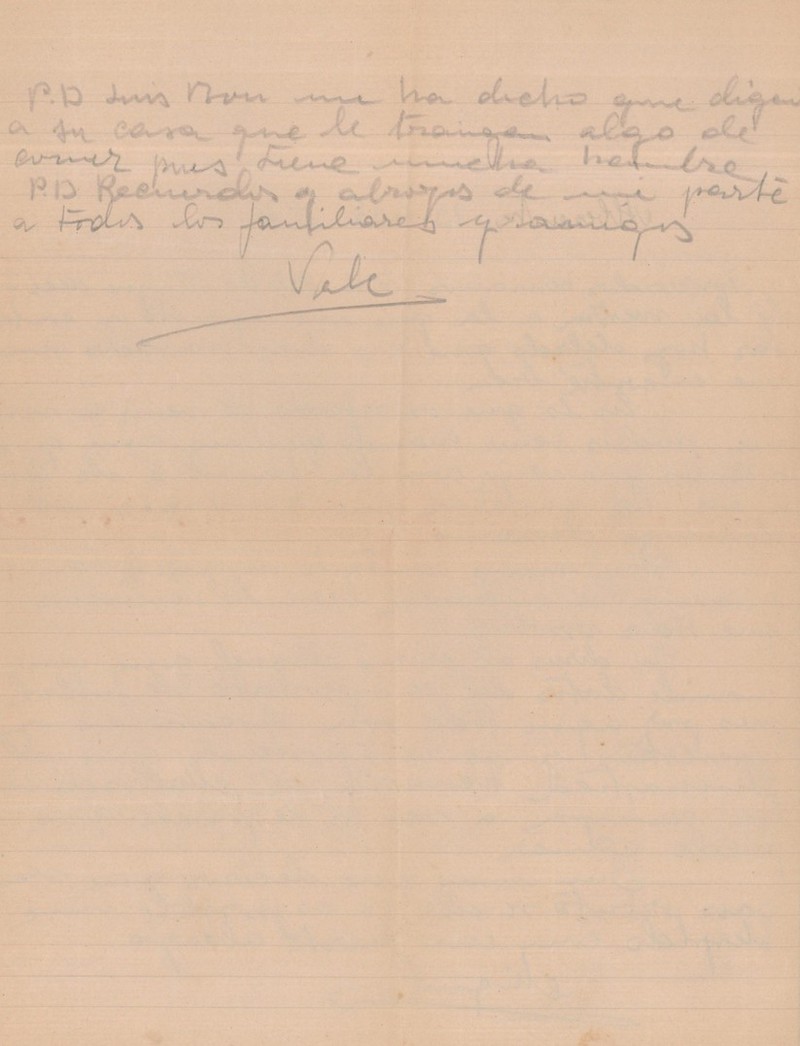 P.D Luis Bou me ha dicho que digan
a su casa que le traigan algo de
comer pues tiene mucha hambre
P.D Recuerdos y abrazos de mi parte
a todos los familiares y amigos
Vale